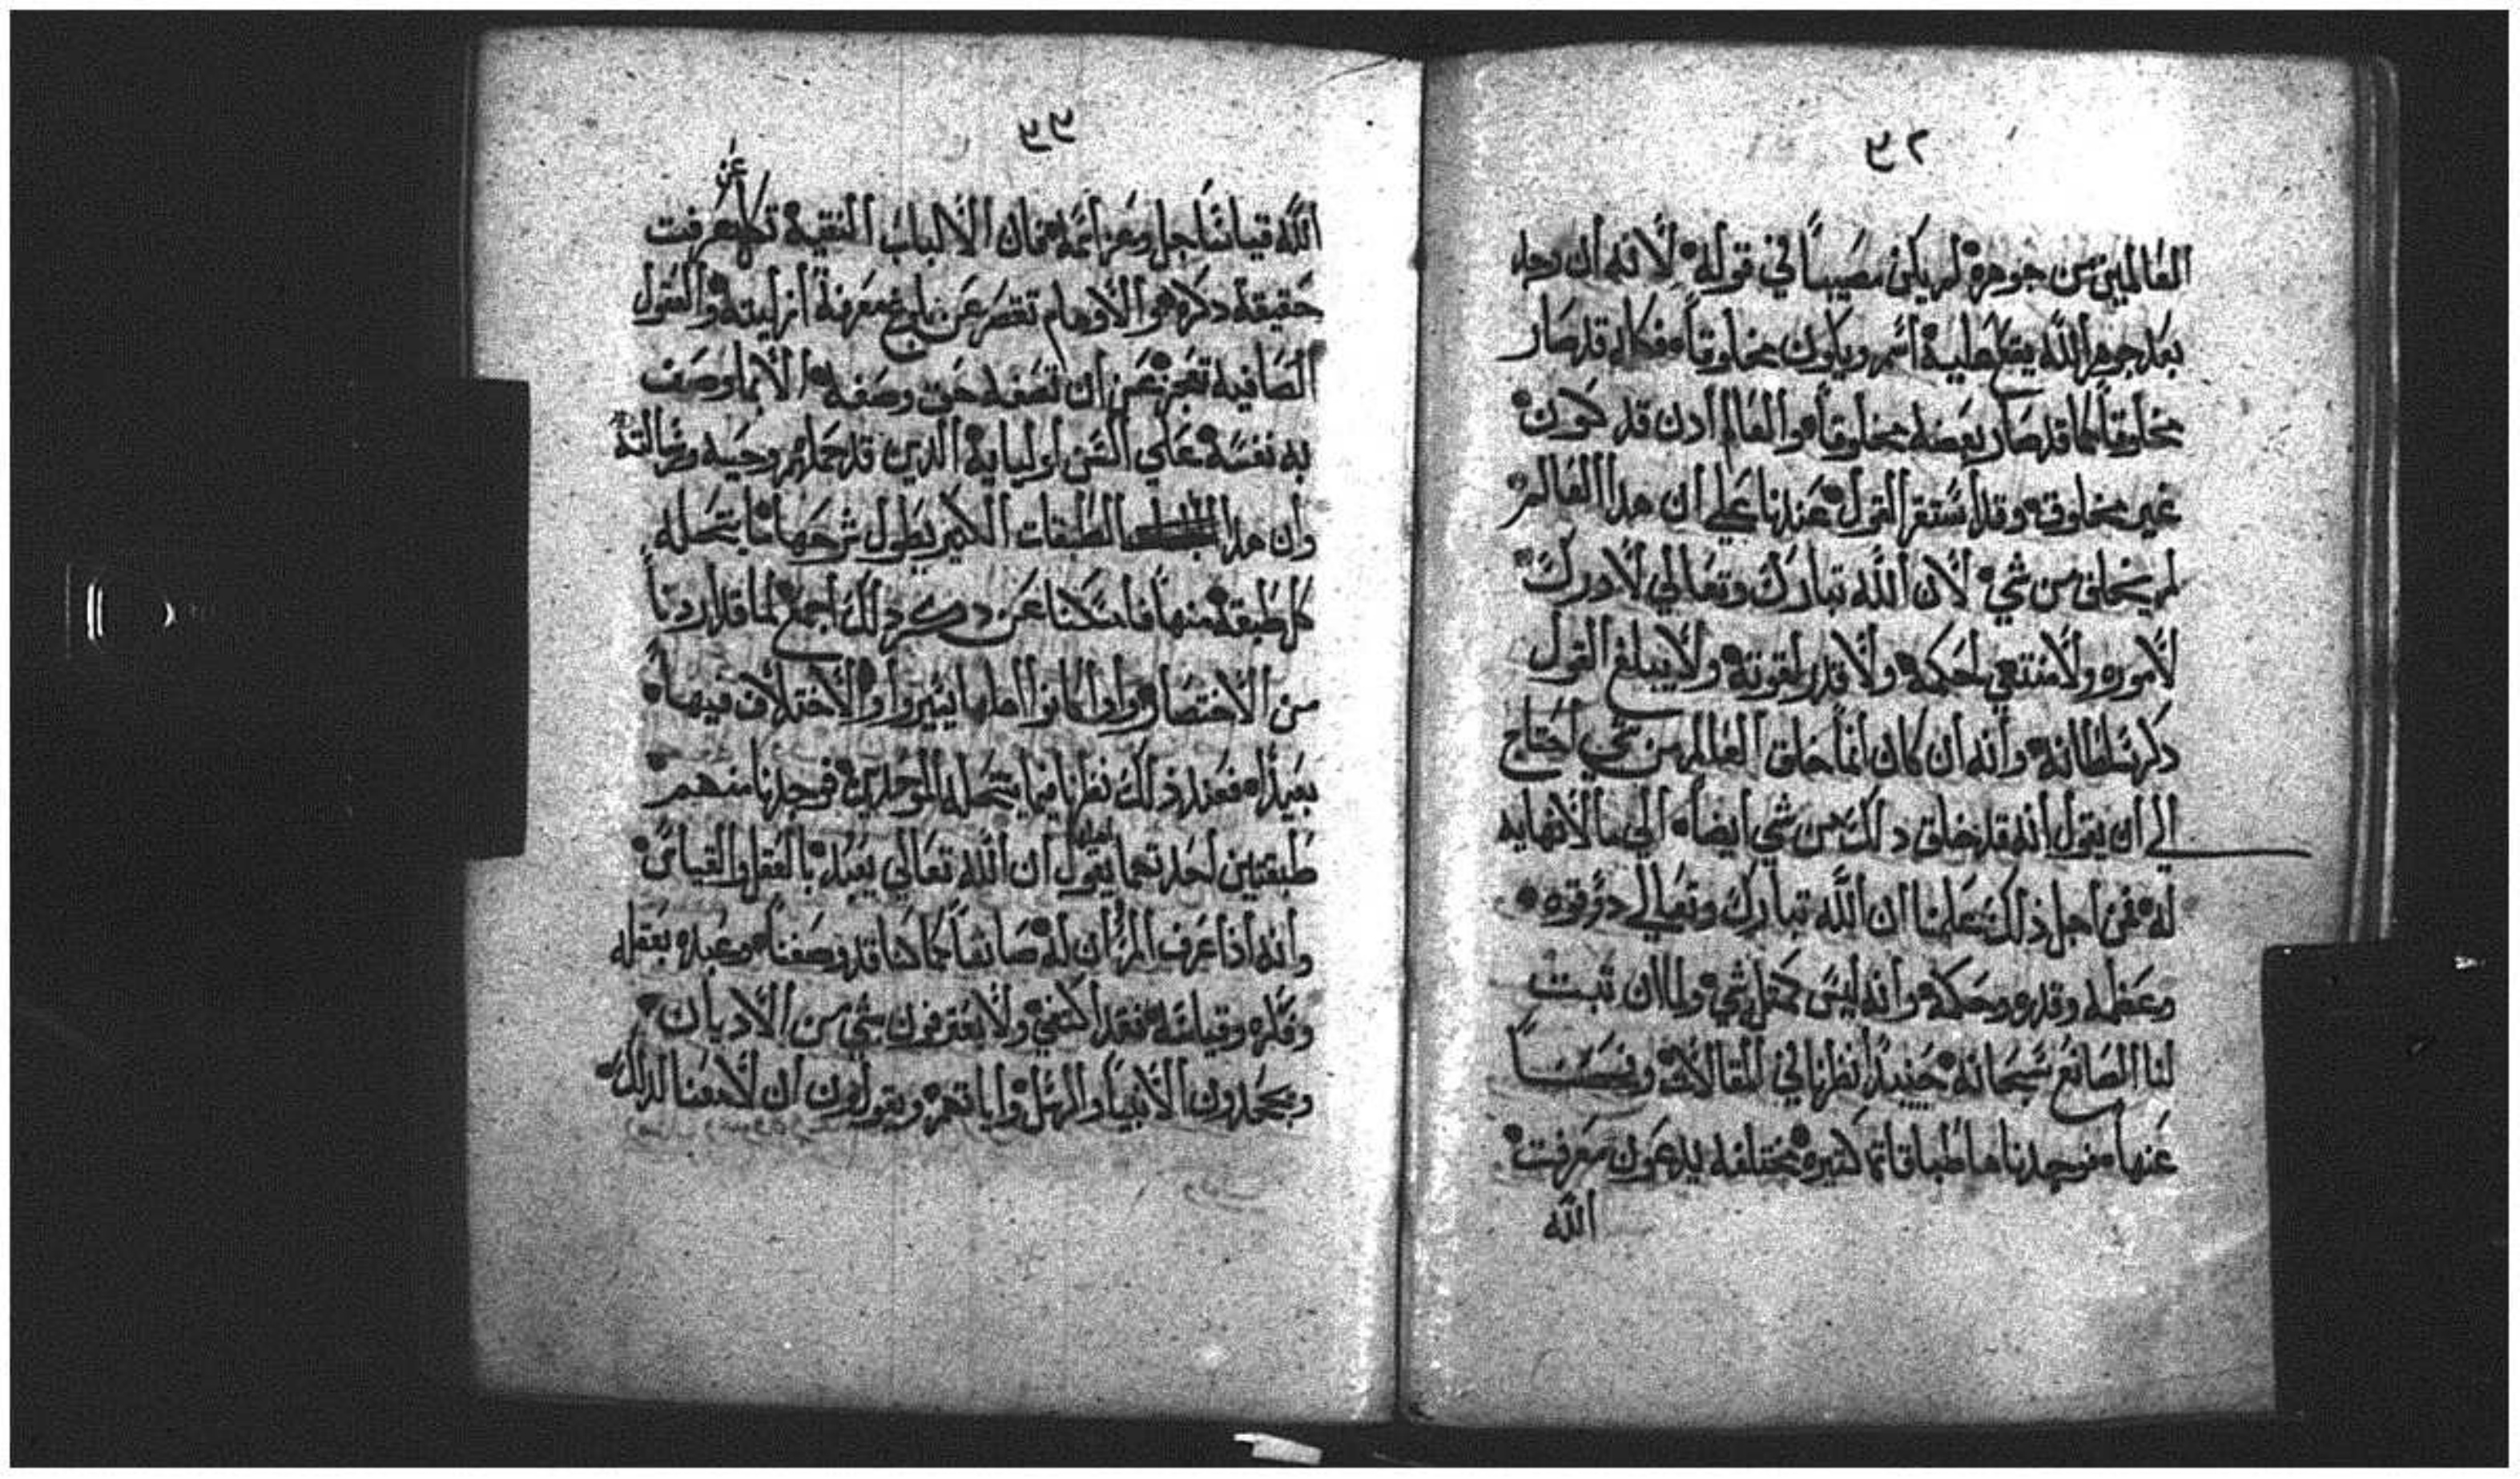 العالمين من جوهره لم يكن مصيباً في قوله لانه ان دخل
بعد جوهر الله يقع عليه اسم ويكون مخلوقاً فكانه قد صار
مخلوقاً كما قد صار بعضه مخلوقاً والعالم ادن قد كون
غير مخلوق وقد استقر القول عندنا علي ان هدا العالم
لم يخلق من شي لان الله تبارك وتعالي لا درك
لاموره ولا منتهي لحكمه ولا قدر لقوته ولا يبلغ القول
دكر سلطانه وانه ان كان انما خلق العالم من شي احتاج
الي ان يقول انه قد خلق دلك من شي ايضاً الي ما لا نهايه
له فمن اجل ذلك علمنا ان الله تبارك وتعالي دو قوه
وعظمه وقدره وحكمه وانه ليس كمثل شي ولما ان ثبت
لنا الصانع سبحانه حينيد نظرنا في المقالات وفحصنا
عنها فوجدناها طباقاتها كتيره مختلفه يدعون معرفت
الله
الله قياساً جل وعز اسمه فان الالباب النقيه تكل عن معرفت
حقيقة دكره والاوهام تقصر عن بلوغ معرفة ازليته والعقول
الصافيه تعجز عن ان تصفه حق وصفه الا بما وصف
به نفسه علي السن اوليايه الدين قد حملهم وحيه ورسالته
وان هدا الطبقات الكتير يطول شرحها ما ينتحله
كل طبقه منها فامسكنا عن دكر دلك اجمع لما قد اردنا
من الاختصار وان كانوا اهلها والاختلاف فيها
بعيداً فعند ذلك نظرنا فيما ينتحله الموحدين فوجدنا منهم
طبقتين احدتهما يقول ان الله تعالي يعبد بالعقل والقياس
وانه اذا عرف المرؤ ان له صانعاً كما كنا قد وصفنا وعبده بعقله
وفكره وقياسه فقد اكتفي ولا يعترفون بشي من الاديان
ويجحدون الانبيا والرسل واياتهم ويقولون ان لا معنا لدلك